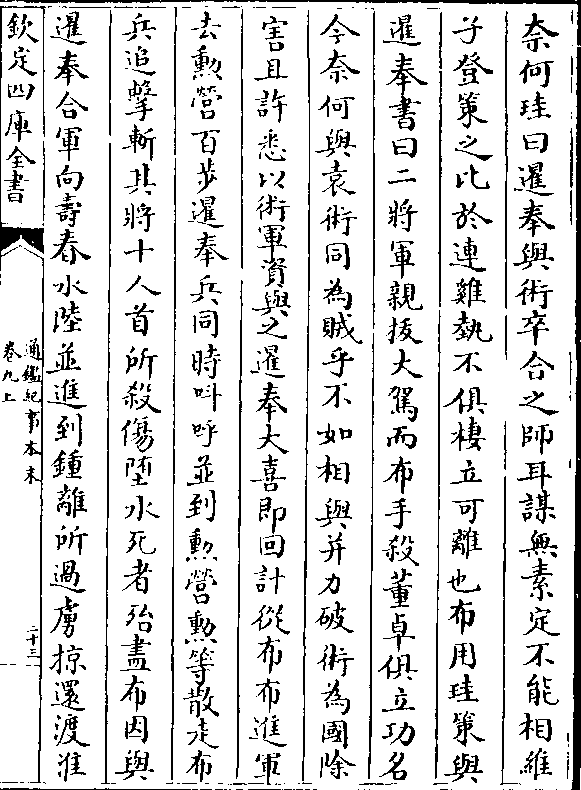 奈何珪曰暹奉與術卒合之師耳謀無素定不能相維
子登策之比於連雞埶不俱棲立可離也布用珪策與
暹奉書曰二將軍親拔大駕而布手殺董卓俱立功名
今奈何與袁術同為賊乎不如相與并力破術為國除
害且許悉以術軍資與之暹奉大喜即回計從布布進軍
去勲營百步暹奉兵同時呌呼並到勲營勲等散走布
兵追擊斬其將十人首所殺傷墮水死者殆盡布因與
暹奉合軍向壽春水陸並進到鍾離所過虜掠還渡淮
欽定四庫全書
通鑑紀事本末
卷九上
二十三